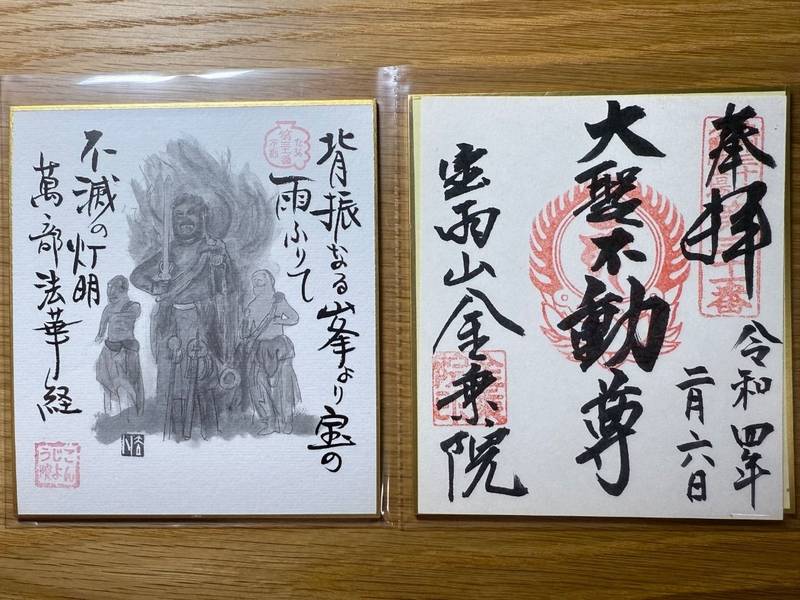 奉拝
令和四年
二月六日
大聖不動尊
宝雨山金乗院
背振なる峯より宝の
雨ふりて
不滅の灯明
萬部法華経
こん
じよ
う院